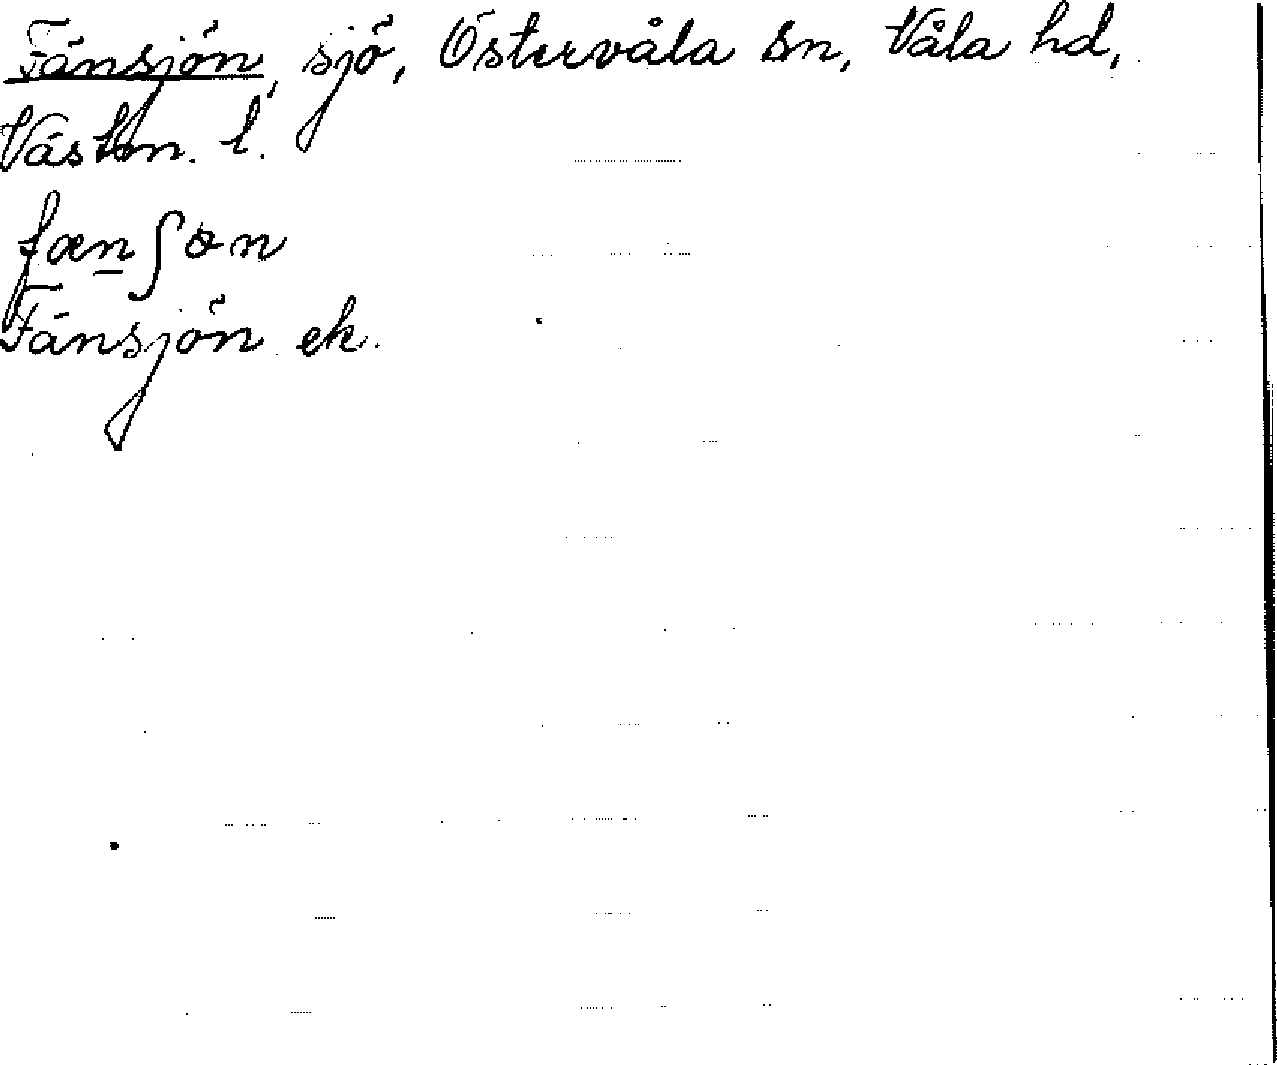 Fänsjön, sjö, Östervåla sn, Våla hd,
Västm. l.
fæn̲ʃɵn
Fänsjön ek.